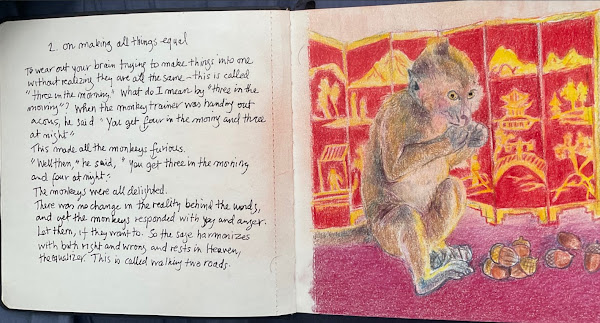 2. on making all things equal
To wear out your brain trying to make things into one
without realizing they are all the same - this is called
"three in the morning." What do I mean by "three in the
morning"? When the monkey trainer was handing out
acorns, he said "You get four in the morning and three
at night"
This made all the monkeys furious.
"Well then," he said, "You get three in the morning
and four at night."
The monkeys were all delighted.
There was no change in the reality behind the words,
and yet the monkeys responded with joy and anger.
Let them, if they want to. So the sage harmonizes
with both right and wrong and rests in Heaven,
the equalizer. This is called walking two roads.